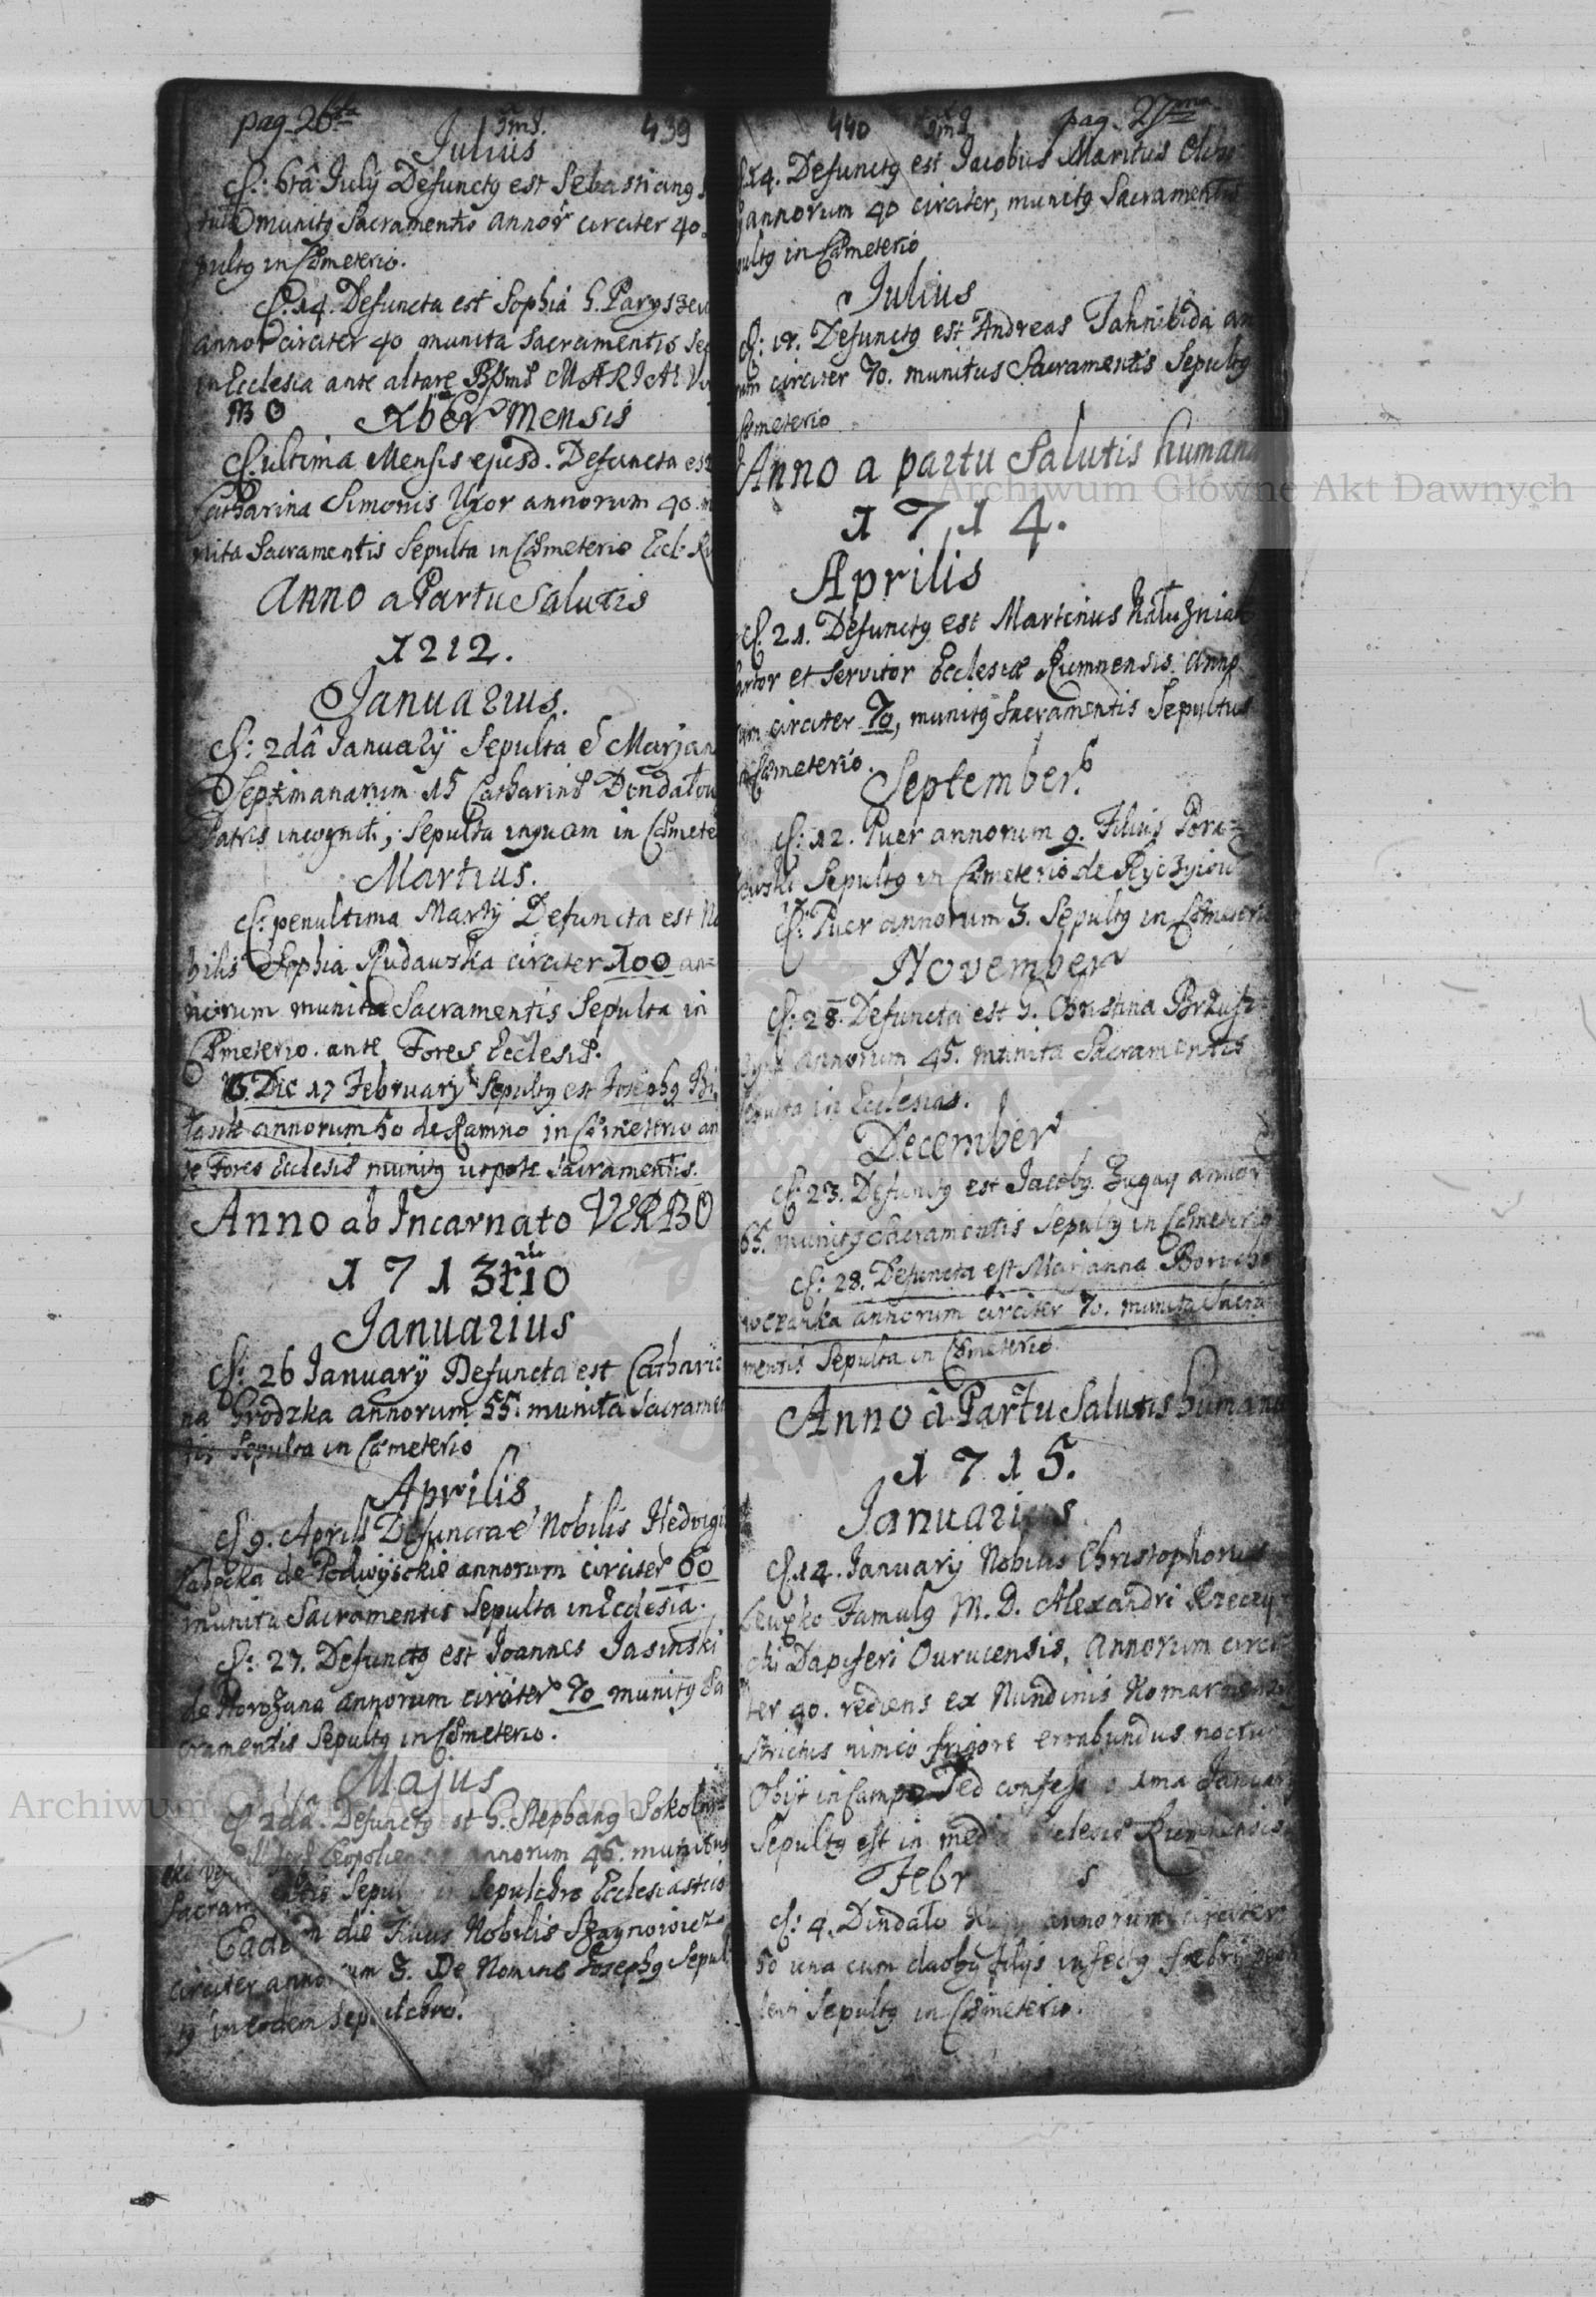 pag. 26ta
439
Julius
6tâ July Defunctg est Sebastiang
munitg Sacramentis annor circiter 40
pultg in Cœmeterio.
14. Defuncta est Sophia G. Paryszew
annor circiter 40 munita Sacramentis Se
in Ecclesia ante altare MARIAE
Xber Mensis
ultima Mensis ejusd. Defuncta est
Catharina Simonis Uxor annorum 40. m
nita Sacramentis Sepulta in Cœmeterio Eccl.
Anno a Partu Salutis
1212.
Januarius.
2dâ Januarÿ Sepulta ē Marjan
Septimanarum 15 Catharinæ Dondałow
Patris incogniti; Sepulta inquam in Cœmete
Martius.
penultima Martÿ Defuncta est No
bilis Sophia Rudawska circiter 100 an=
norum munita Sacramentis Sepulta in
Cœmeterio. ante Fores Ecclesiæ.
Die 17 February Sepultg est Josephg
annorum 50 in Cœmeterio an
te Fores Ecclesiæ munitg utpote Sacramentis.
Anno ab Incarnato VERBO
1713tio
Januarius
26 Januarÿ Defuncta est Cathari
na Grodzka annorum 55. munita Sacramen
tis Sepulta in Cœmeterio
Aprilis
9. Aprilis Defuncta ē Nobilis Hedvigi
de Podwysockie annorum circiter 60
munita Sacramentis Sepulta in Ecclesia.
27. Defunctg est Joannes Jasinski
de Horożana annorum circiter 70 munitg Sa
cramentis Sepultg in Cœmeterio.
Majus
2da. Defunctg est G. Stephang Sokolni
annorum 45. munitus
Sepulchro Ecclesiastico
Eadem die Filius Nobilis
circiter annorum 3. De Nomine Josephg Sepul
tg in eodem Sepulchro.
440
pag. 27ma
14. Defunctg est Jacobus Maritus
annorum 40 circiter, munitg Sacramentis
pultg in Cœmeterio
Julius
Defunctg est Andreas an
rum circiter 70. munitus Sacramentis Sepultg
Cœmeterio
Anno a partu Salutis humanæ
1714.
Aprilis
21. Defunctg est Martinus Kałuzniak
et Servitor Ecclesiæ Rumnensis. Anno
rum circiter 70, munitg Sacramentis Sepultus
Cœmeterio.
September
12. Puer annorum 9. Filius
Sepultg in Cœmeterio de
Puer annorum 3. Sepultg in Cœmeterio
November
28. Defuncta est G. Christina
annorum 45. munita Sacramentis
Sepulta in Ecclesia.
December
23. Defunctg est Jacobg Zugay annor
65. munitg Sacramentis Sepultg in Cœmeterio
28. Defuncta est Marjanna
annorum circiter 70. munita Sacra
mentis Sepulta in Cœmeterio.
Anno à Partu Salutis humanæ
1715.
Januarius
14. Januarÿ Nobilis Christophorus
Famulg M. D. Alexandri Rzeczy
cki Dapiferi Ovrucensis, annorum circi
ter 40. rediens ex Nundinis
strictus nimio frigore errabundus noctu
Obijt in Campo Sed 1ma Januarÿ
Sepultg est in media Ecclesiæ Rumnensis
4. annorum circiter
50 una cum duobg filijs infectg
Sepultg in Cœmeterio.
Archiwum Główne Akt Dawnych
Archiwum Główne Akt Dawnych